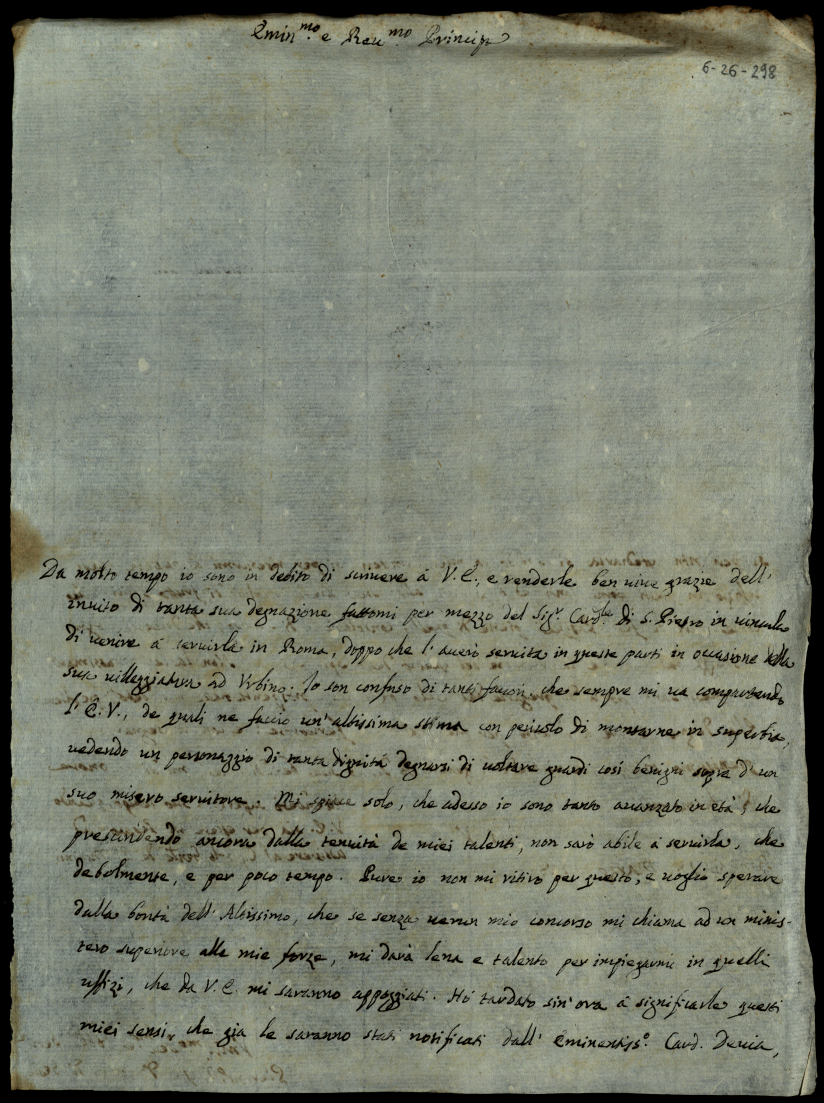 Emin.mo e Reu.mo Principe
6-26-298
Da molto tempo io sono in debito di scriuere á V.E., e renderle ben uiue grazie dell'
inuito di tanta sua degnazione fattomi per mezzo del Sig.r Card.le di S. Pietro in uincula
di uenire á seruirla in Roma, doppo che l'auerò seruita in queste parti in occasione della
sua uilleggiatura ad Vrbino. Io son confuso di tanti fauori che sempre mi ua compartendo
l'E.V., de quali ne faccio un'altissima stima con pericolo di montarne in superbia,
uedendo un personaggio di tanta dignitá degnarsi di uoltare guardi cosí benigni sopra d'un
suo misero seruitore. Mi spiace solo, che adesso io sono tanto auanzato in etá, che
prescindendo ancora dalla tenuitá de miei talenti, non saró abile á seruirla, che
debolmente, e per poco tempo. Pure io non mi ritiro per questo, e uoglio sperare
dalla bontá dell'Altissimo, che se senza uerun mio concorso mi chiama ad un minis-
tero superiore alle mie forze, mi dará lena e talento per impiegarmi in quelli
uffizi, che da V.E. mi saranno appoggiati. Hó tardato sin'ora á significarle questi
miei sensi, che gia le saranno stati notificati dall'Eminentiss.o Card. Dauia,